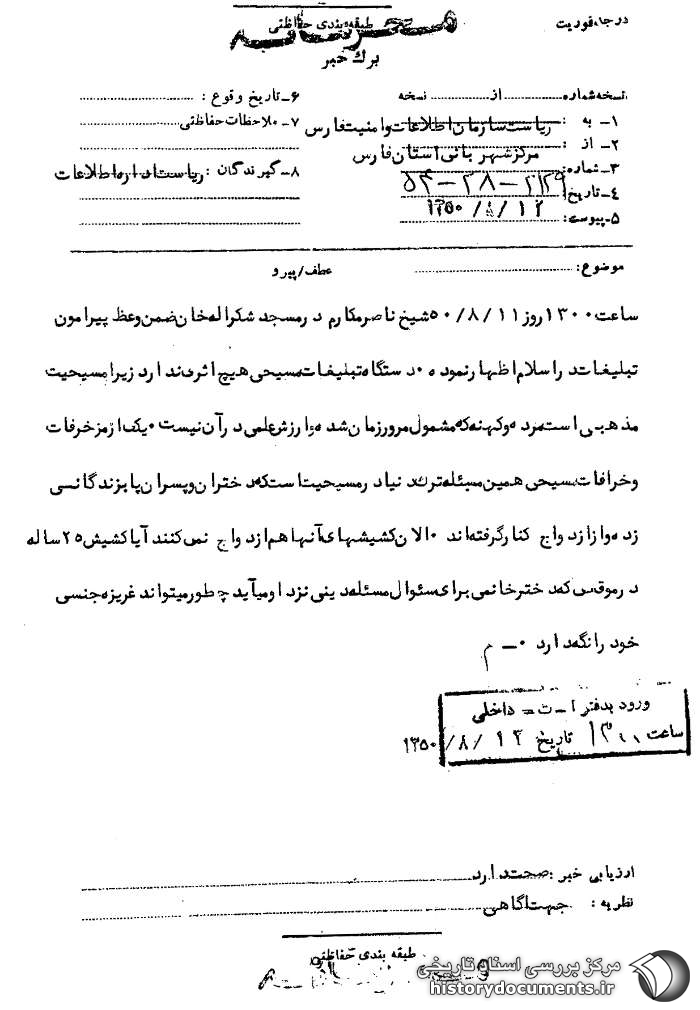 درجه فوریت
طبقه‌بندی حفاظتی
محرمانه
برگ خبر
نسخه شماره از نسخه
۱ـ به : ریاست سازمان اطلاعات و امنیت فارس
۲ـ از : مرکز شهربانی استان فارس
۳ـ شماره:
۴ـ تاریخ: ۱۳۵۰/۸/۱۲
۵ـ پیوست:
۶ـ تاریخ وقوع :
۷ـ ملاحظات حفاظتی
۸ـ گیرندگان : ریاست اداره اطلاعات
موضوع: عطف/پیرو
ساعت ۱۳۰۰ روز ۵۰/۸/۱۱ شیخ ناصر مکارم در مسجد شکراله خان ضمن وعظ پیرامون
تبلیغات در اسلام اظهار نموده ۰ دستگاه تبلیغات مسیحی هیچ اثری ندارد زیرا مسیحیت
مذهبی است مرده و کهنه که مشمول مرور زمان شده و ارزش علمی در آن نیست ۰ یک از مزخرفات
و خرافات مسیحی همین مسئله ترک دنیا در مسیحیت است که دختران و پسران پا بزندگانی
زده و از ازدواج کنار گرفته‌اند ۰ الان کشیشهای آنها هم ازدواج نمی‌کنند آیا کشیش ۲۵ ساله
در موقعی که دختر خانمی برای سئوال مسئله دینی نزد او میآید چطور میتواند غریزه جنسی
خود را نگهدارد ۰ ـ م
ورود بدفتر ا ـ ت = داخلی
ساعت ۱۳۰۰ تاریخ ۱۳۵۰/۸/۱۲
ارزیابی خبر : صحت دارد
نظریه : جهت آگاهی
طبقه بندی حفاظتی
مرکز بررسی اسناد تاریخی
historydocuments.ir